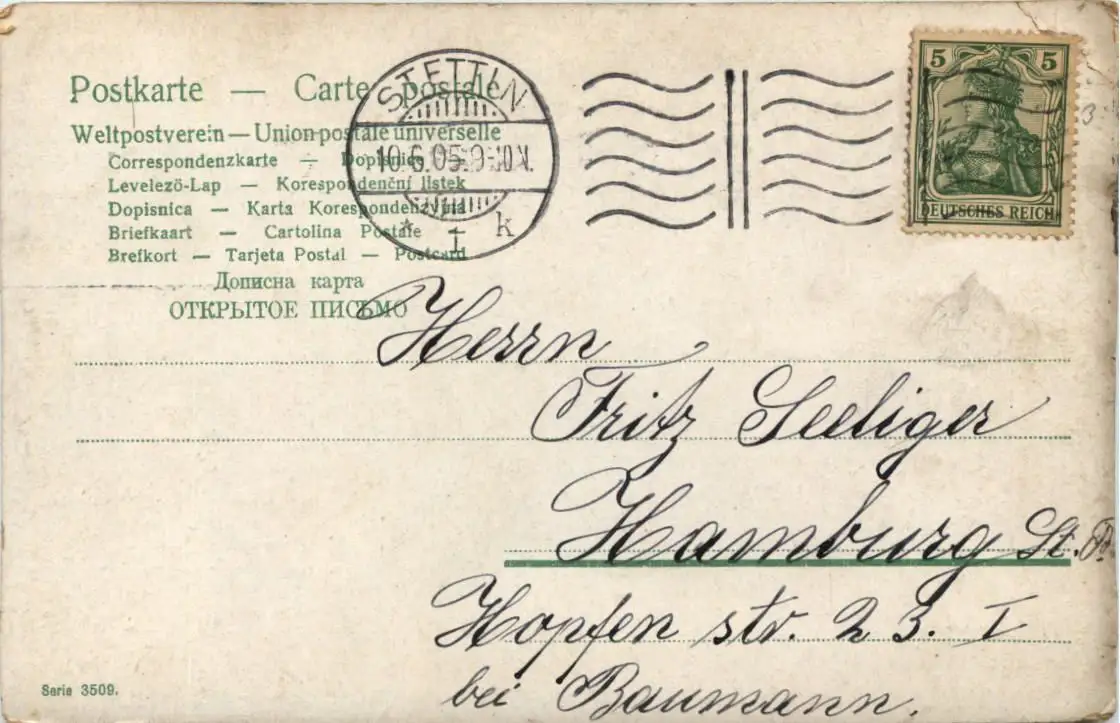 Postkarte — Carte postale
Weltpostverein — Union postale universelle
Correspondenzkarte — Dopisnice
Levelező-Lap — Korespondenční lístek
Dopisnica — Karta Korespondenzyjna
Briefkaart — Cartolina Postale
Brefkort — Tarjeta Postal — Postcard
Дописна карта
ОТКРЫТОЕ ПИСЬМО
STETTIN
10.6.05. 9-10 N.
* 1 k
5 5
DEUTSCHES REICH
Herrn
Fritz Seeliger
Hamburg St. P.
Hopfen str. 23. I
bei Baumann.
Serie 3509.